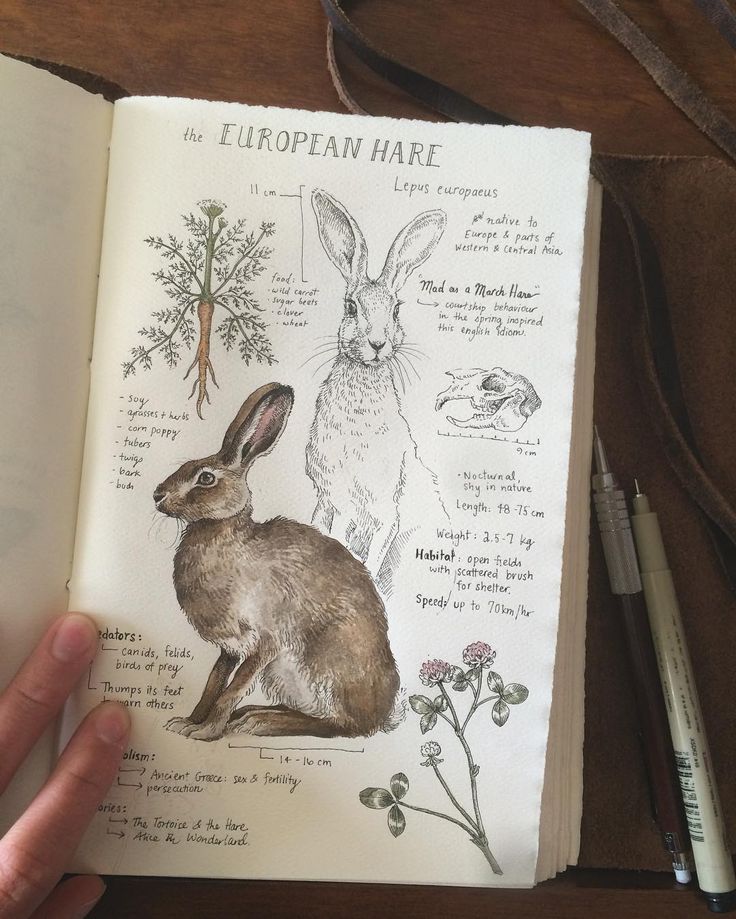 the EUROPEAN HARE
Lepus europaeus
11 cm
native to
Europe & parts of
Western & Central Asia
food:
• wild carrot
• sugar beets
• clover
• wheat
"Mad as a March Hare"
courtship behaviour
in the spring inspired
this english idiom.
9 cm
- soy
- grasses + herbs
- corn poppy
- tubers
- twigs
- bark
- buds
- Nocturnal,
shy in nature
Length: 48-75 cm
Weight: 2.5-7 kg
Habitat: open fields
with scattered brush
for shelter.
Speed: up to 70km/hr
edators:
canids, felids,
birds of prey
Thumps its feet
warn others
14-16 cm
olism:
Ancient Greece: sex & fertility
persecution
ories:
The Tortoise & the Hare
Alice in Wonderland